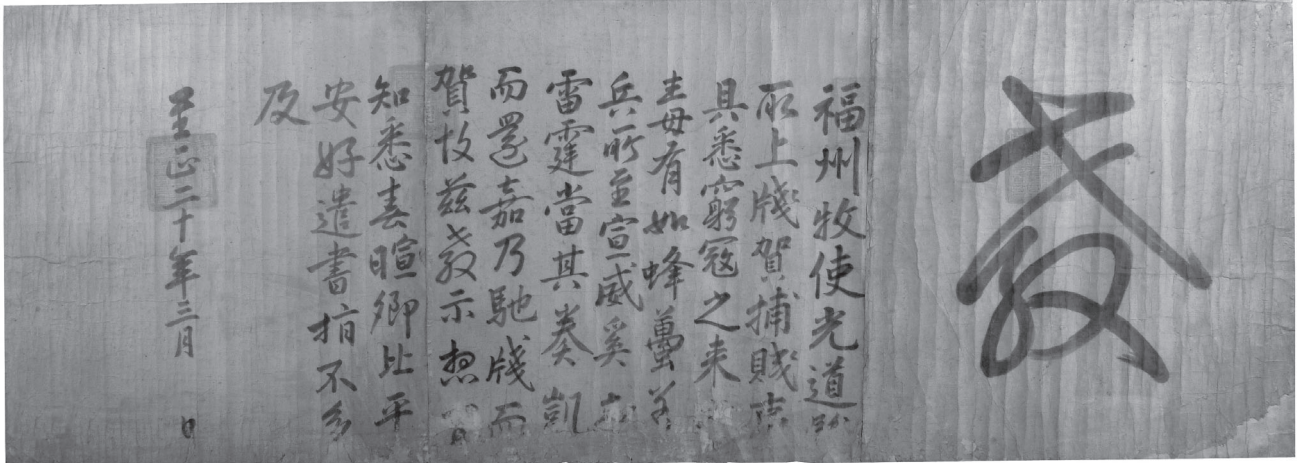 敎
福州牧使光道
所上牋賀捕賊
具悉窮寇之来
毒有如蜂蠆
兵所至宣威奚
雷霆當其奏凱
而還嘉乃馳牋而
賀故玆敎示想宜
知悉春暄卿比平
安好遣書指不多
及
至正二十年三月 日